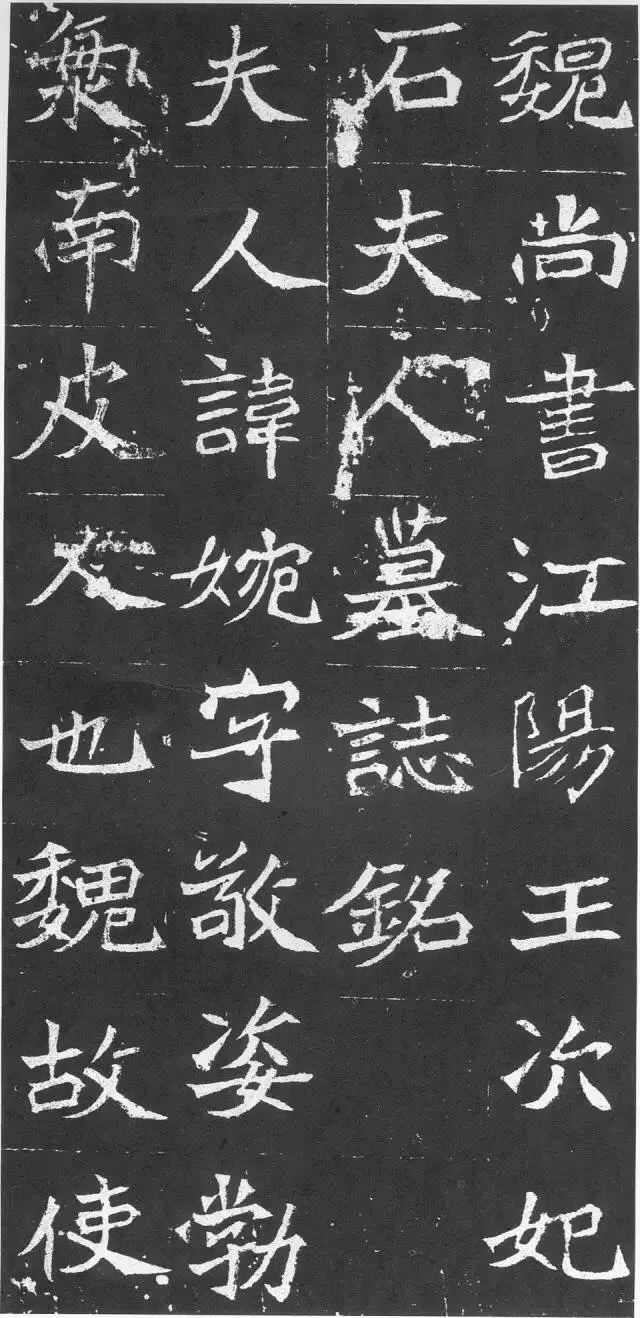 魏尚書江陽王次妃
石夫人墓誌銘
夫人諱婉字敬姿勃
海南皮人也魏故使